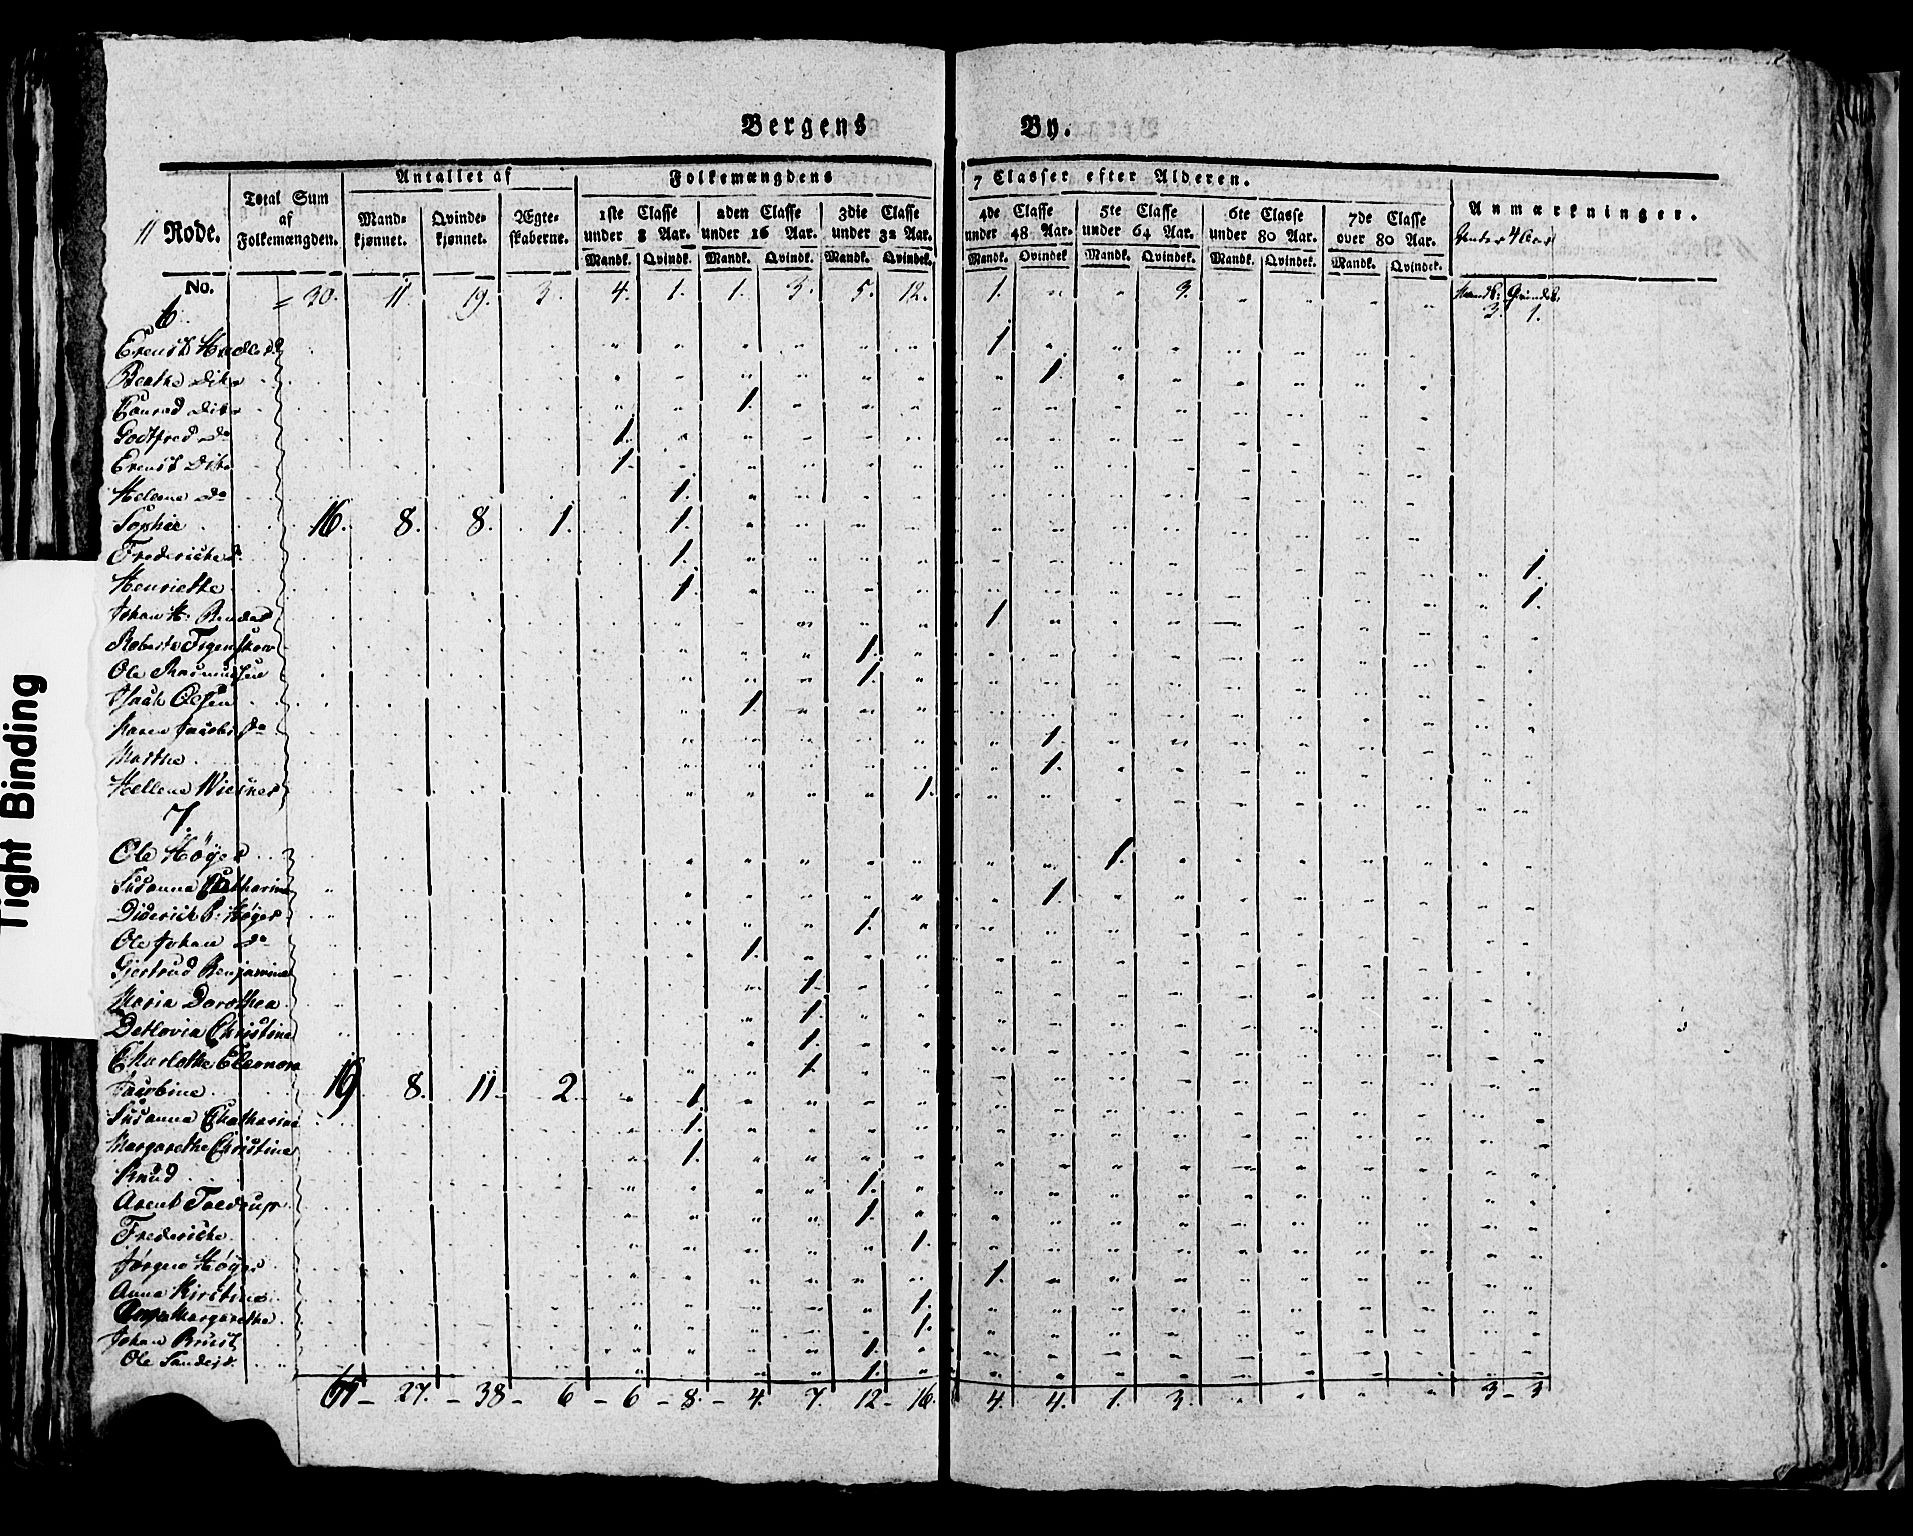 Bergens By.
11 Rode.
Total Sum af Folkemængden.
Antallet af
Mandkjønnet. Qvindekjønnet. Ægteskaberne.
Folkemængdens 7 Classer efter Alderen.
1ste Classe under 8 Aar. 2den Classe under 16 Aar. 3die Classe under 32 Aar. 4de Classe under 48 Aar. 5te Classe under 64 Aar. 6te Classe under 80 Aar. 7de Classe over 80 Aar.
Anmærkninger.
Under 4 Aar
Mandk. Qvindk. Mandk. Qvindk. Mandk. Qvindek. Mandk. Qvindek. Mandk. Qvindek. Mandk. Qvindek. Mandk. Qvindek.
Mandk. Qvindek.
No. = 30. 11. 19. 3. 4. 1. 1. 3. 5. 12. 1. " " 3. " " " "
3. 1.
6
Ernst 1
Beathe Dito 1.
Conrad Dito 1.
Godtfred Do 1.
Ernst Dito 1.
Helene Do 1.
Sophie 16. 8. 8. 1. 1.
Frederiche d. 1. 1.
Henriethe 1. 1.
Johan H. 1
1.
Ole Rasmussen 1.
Isaak Olsen 1.
Karen Jacobs Do 1.
Marthe 1.
Hellena Wiesner 1.
7.
Ole Høyer 1.
Susanna Catharina 1.
Diderich B. Høyer 1.
Ole Johan Do 1.
Giertrud Benjamine 1.
Maria Dorothea 1.
Detlovia Christine 1.
Charlothe Eleonora 1.
Jacobine 19 8. 11 2. 1.
Susanna Chatharina 1.
Margarethe Christine 1.
Knud 1.
Arent 1.
Frederiche 1.
Jørgen Høyer 1.
Anna Kirstine 1.
Margarethe 1.
Johan 1.
Ole 1.
65 - 27. - 38 - 6 - 6 - 8. - 4. 7. 12 - 16. 4. 4. 1. 3. " " " " 3 - 3
Tight Binding